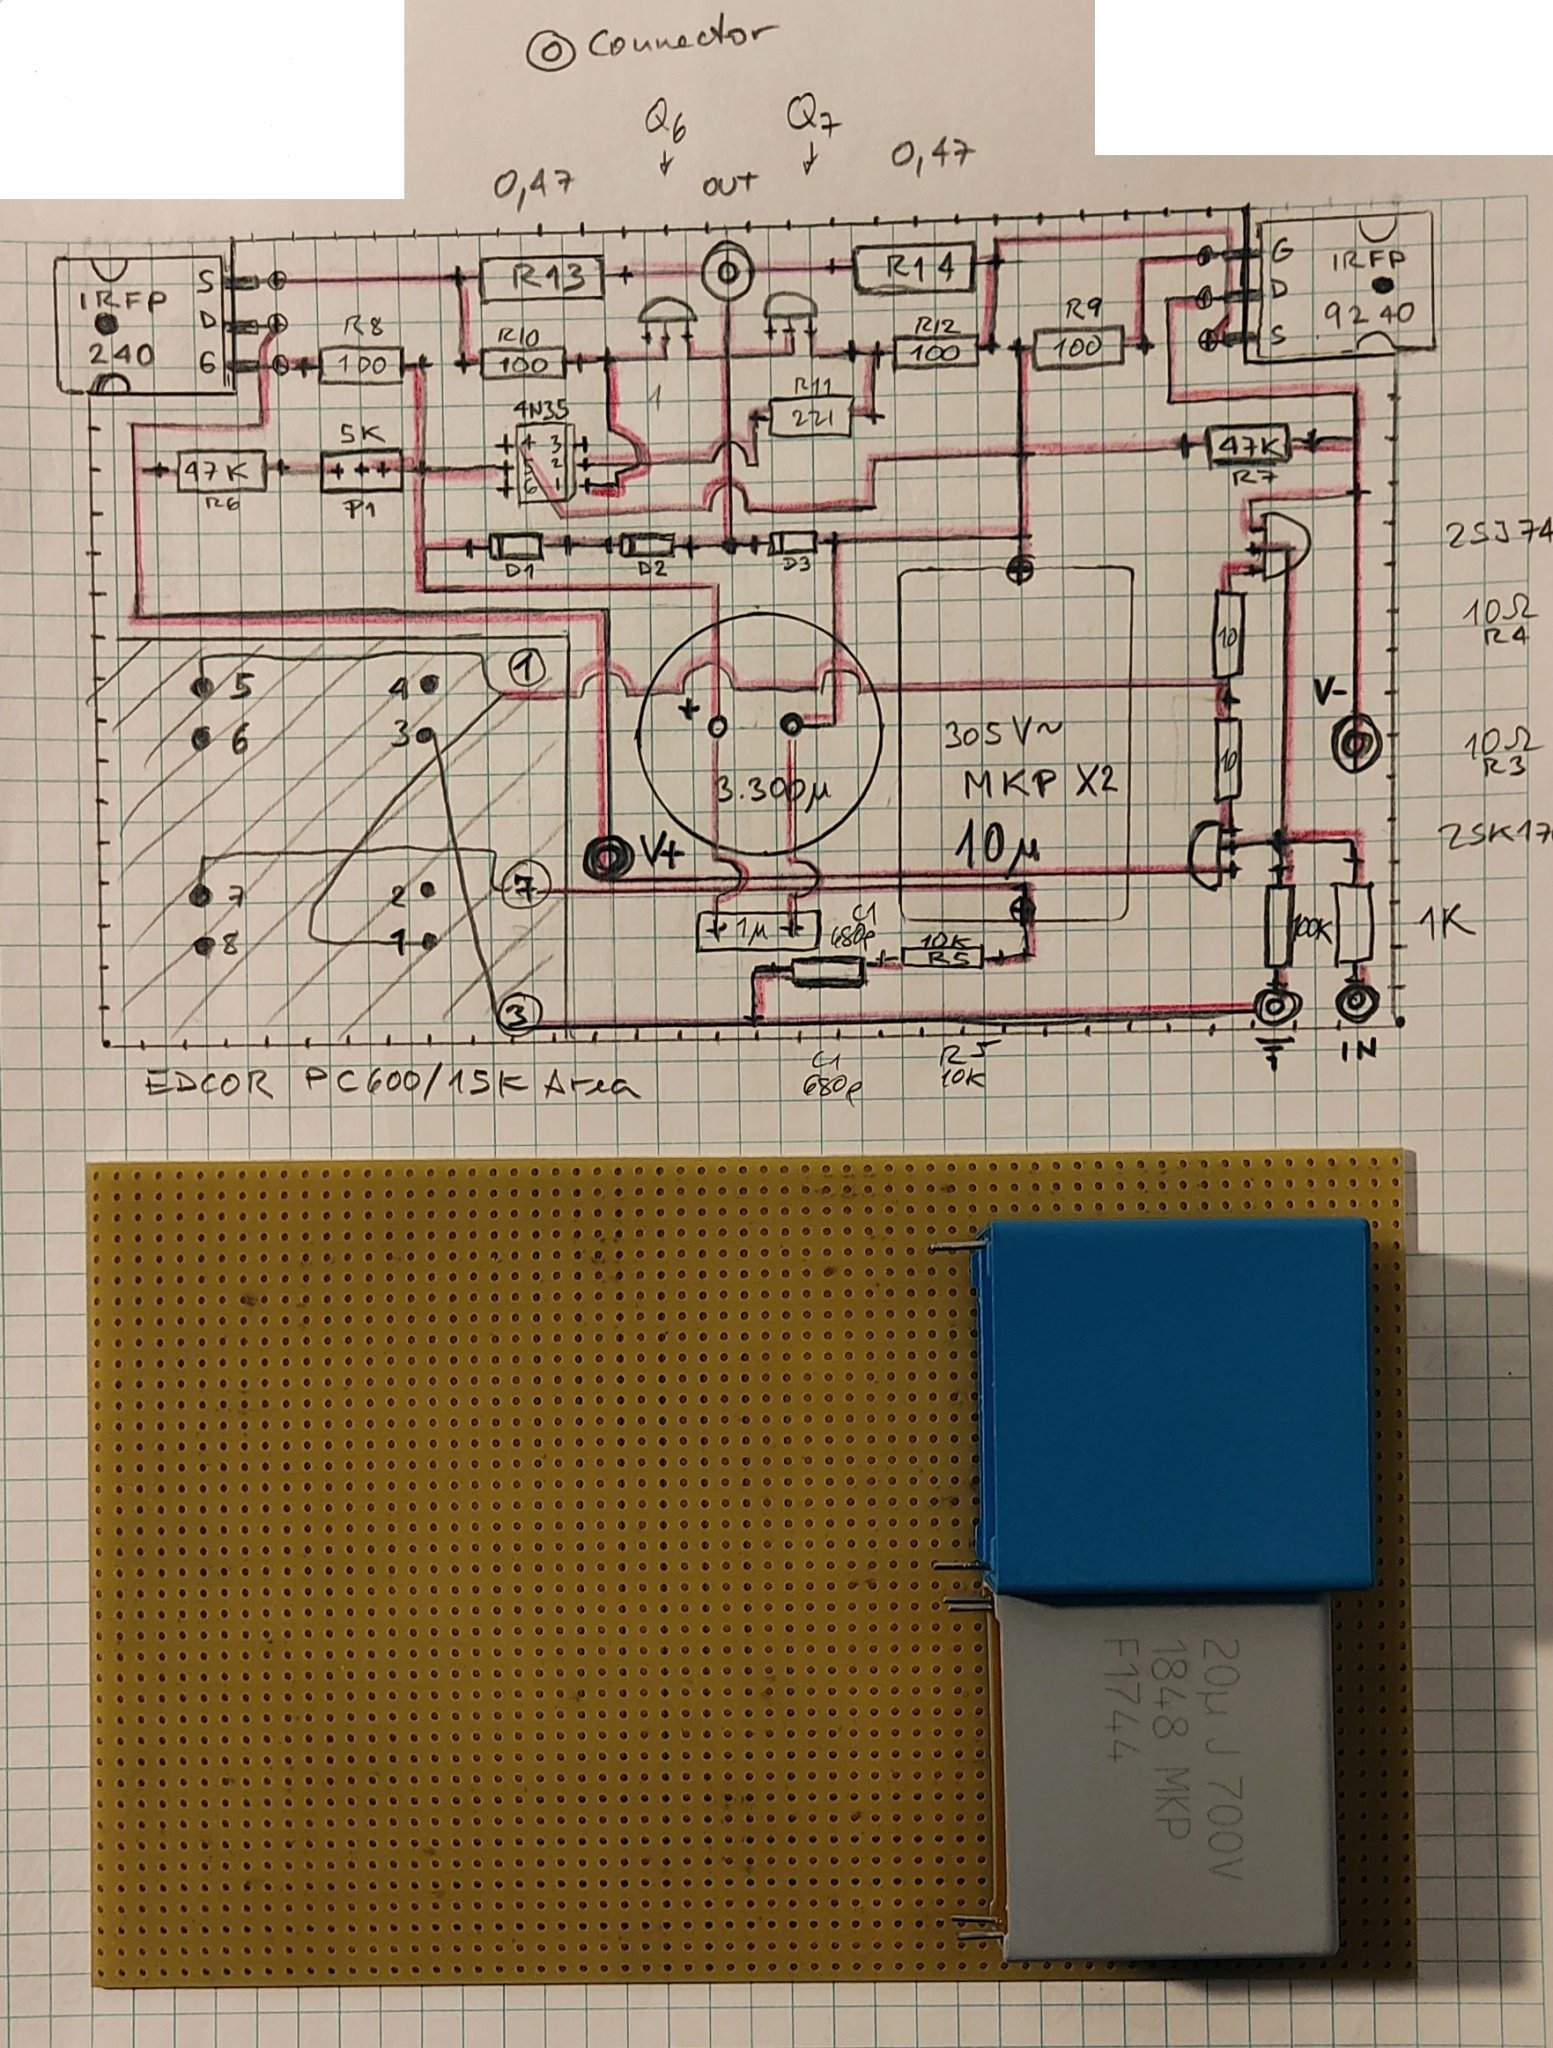 Connector
Q6
Q7
0,47
OUT
0,47
IRFP
240
S
D
G
R13
R14
G
D
S
IRFP
9240
R8
100
R10
100
R12
100
R9
100
1
R11
221
4N35
4
5
6
3
2
1
5K
P1
47K
R6
47K
R7
D1
D2
D3
2SJ74
10Ω
R4
10
5
6
4
3
1
+
V-
305V~
MKP X2
10µ
3.300µ
10
10Ω
R3
V+
2SK17
7
8
2
1
7
1µ
C1
680p
10K
R5
100K
1K
3
IN
EDCOR PC600/15K Area
C1
680p
R5
10K
20µ J 700V
1848 MKP
F1744